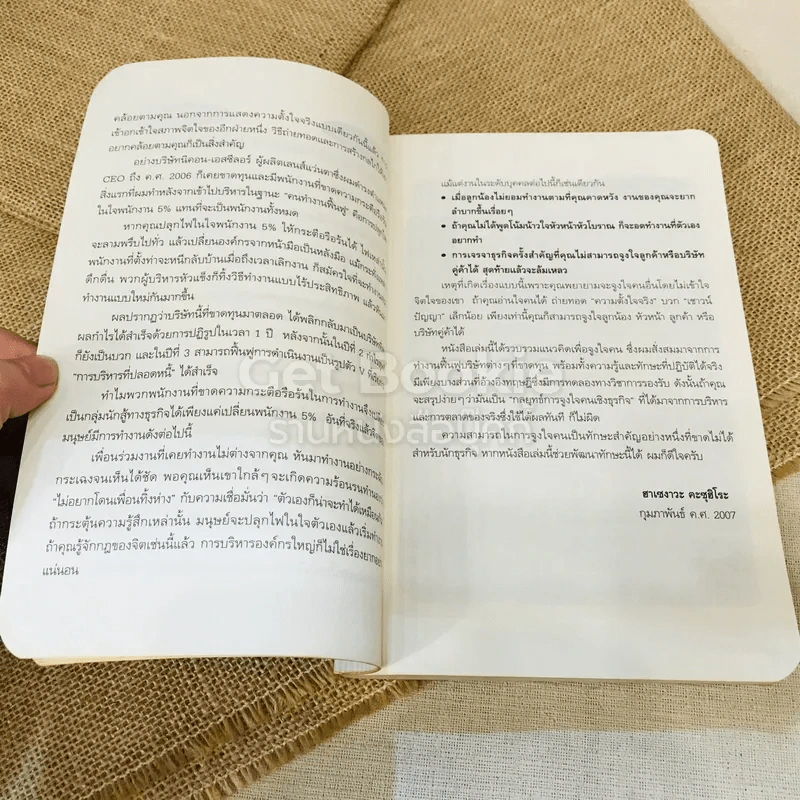 คล้อยตามคุณ นอกจากการแสดงความตั้งใจจริงแบบเดียวกันนี้แล้ว
เข้าอกเข้าใจสภาพจิตใจของอีกฝ่ายหนึ่ง วิธีถ่ายทอดและการสร้างกลไกให้
อยากคล้อยตามคุณก็เป็นสิ่งสำคัญ
อย่างบริษัทนิคอน-เอสซีลอร์ ผู้ผลิตเลนส์แว่นตาซึ่งผมดำรงตำแหน่ง
CEO ถึง ค.ศ. 2006 ก็เคยขาดทุนและมีพนักงานที่ขาดความกระตือรือร้น
สิ่งแรกที่ผมทำหลังจากเข้าไปบริหารในฐานะ "คนทำงานฟื้นฟู" คือการจุดไฟ
ในใจพนักงาน 5% แทนที่จะเป็นพนักงานทั้งหมด
หากคุณปลุกไฟในใจพนักงาน 5% ให้กระตือรือร้นได้ ไฟเหล่านั้น
จะลามพรึบไปทั่ว แล้วเปลี่ยนองค์กรจากหน้ามือเป็นหลังมือ แม้กระทั่ง
พนักงานที่ตั้งท่าจะหนีกลับบ้านเมื่อถึงเวลาเลิกงาน ก็สมัครใจที่จะทำงาน
ดึกดื่น พวกผู้บริหารหัวแข็งก็ทิ้งวิธีทำงานแบบไร้ประสิทธิภาพ แล้วหัน
ทำงานแบบใหม่กันมากขึ้น
ผลปรากฏว่าบริษัทนี้ที่ขาดทุนมาตลอด ได้พลิกกลับมาเป็นบริษัท
ผลกำไรได้สำเร็จด้วยการปฏิรูปในเวลา 1 ปี หลังจากนั้นในปีที่ 2
ก็ยังเป็นบวก และในปีที่ 3 สามารถฟื้นฟูการดำเนินงานเป็นรูปตัว V
"การบริหารที่ปลอดหนี้" ได้สำเร็จ
ทำไมพวกพนักงานที่ขาดความกระตือรือร้นในการทำงานจึง
เป็นกลุ่มนักสู้ทางธุรกิจได้เพียงแค่เปลี่ยนพนักงาน 5% อันที่จริงแล้ว
มนุษย์มีการทำงานดังต่อไปนี้
เพื่อนร่วมงานที่เคยทำงานไม่ต่างจากคุณ หันมาทำงานอย่าง
กระฉับกระเฉงจนเห็นได้ชัด พอคุณเห็นเขาใกล้ๆ จะเกิดความร้อนรน
"ไม่อยากโดนเพื่อนทิ้งห่าง" กับความเชื่อมั่นว่า "ตัวเองก็น่าจะทำได้เหมือน
ถ้ากระตุ้นความรู้สึกเหล่านั้น มนุษย์จะปลุกไฟในใจตัวเองแล้วเริ่มทำ
ถ้าคุณรู้จักกฎของจิตเช่นนี้แล้ว การบริหารองค์กรใหญ่ก็ไม่ใช่เรื่องยาก
แน่นอน
แม้แต่งานในระดับบุคคลต่อไปนี้ก็เช่นเดียวกัน
• เมื่อลูกน้องไม่ยอมทำงานตามที่คุณคาดหวัง งานของคุณจะยาก
ลำบากขึ้นเรื่อยๆ
• ถ้าคุณไม่ได้พูดโน้มน้าวใจหัวหน้าหัวโบราณ ก็จะอดทำงานที่ตัวเอง
อยากทำ
• การเจรจาธุรกิจครั้งสำคัญที่คุณไม่สามารถจูงใจลูกค้าหรือบริษัท
คู่ค้าได้ สุดท้ายแล้วจะล้มเหลว
เหตุที่เกิดเรื่องแบบนี้เพราะคุณพยายามจะจูงใจคนอื่นโดยไม่เข้าใจ
จิตใจของเขา ถ้าคุณอ่านใจคนได้ ถ่ายทอด "ความตั้งใจจริง" บวก "เชาวน์
ปัญญา" เล็กน้อย เพียงเท่านี้คุณก็สามารถจูงใจลูกน้อง หัวหน้า ลูกค้า หรือ
บริษัทคู่ค้าได้
หนังสือเล่มนี้ได้รวบรวมแนวคิดเพื่อจูงใจคน ซึ่งผมสั่งสมมาจากการ
ทำงานฟื้นฟูบริษัทต่างๆ ที่ขาดทุน พร้อมทั้งความรู้และทักษะที่ปฏิบัติได้จริง
มีเพียงบางส่วนที่อ้างอิงทฤษฎีซึ่งมีการทดลองทางวิชาการรองรับ ดังนั้นถ้าคุณ
จะสรุปง่ายๆ ว่ามันเป็น "กลยุทธ์การจูงใจคนเชิงธุรกิจ" ที่ได้มาจากการบริหาร
และการตลาดของจริงซึ่งใช้ได้ผลทันที ก็ไม่ผิด
ความสามารถในการจูงใจคนเป็นทักษะสำคัญอย่างหนึ่งที่ขาดไม่ได้
สำหรับนักธุรกิจ หากหนังสือเล่มนี้ช่วยพัฒนาทักษะนี้ได้ ผมก็ดีใจครับ
ฮาเซงาวะ คะซุฮิโระ
กุมภาพันธ์ ค.ศ. 2007